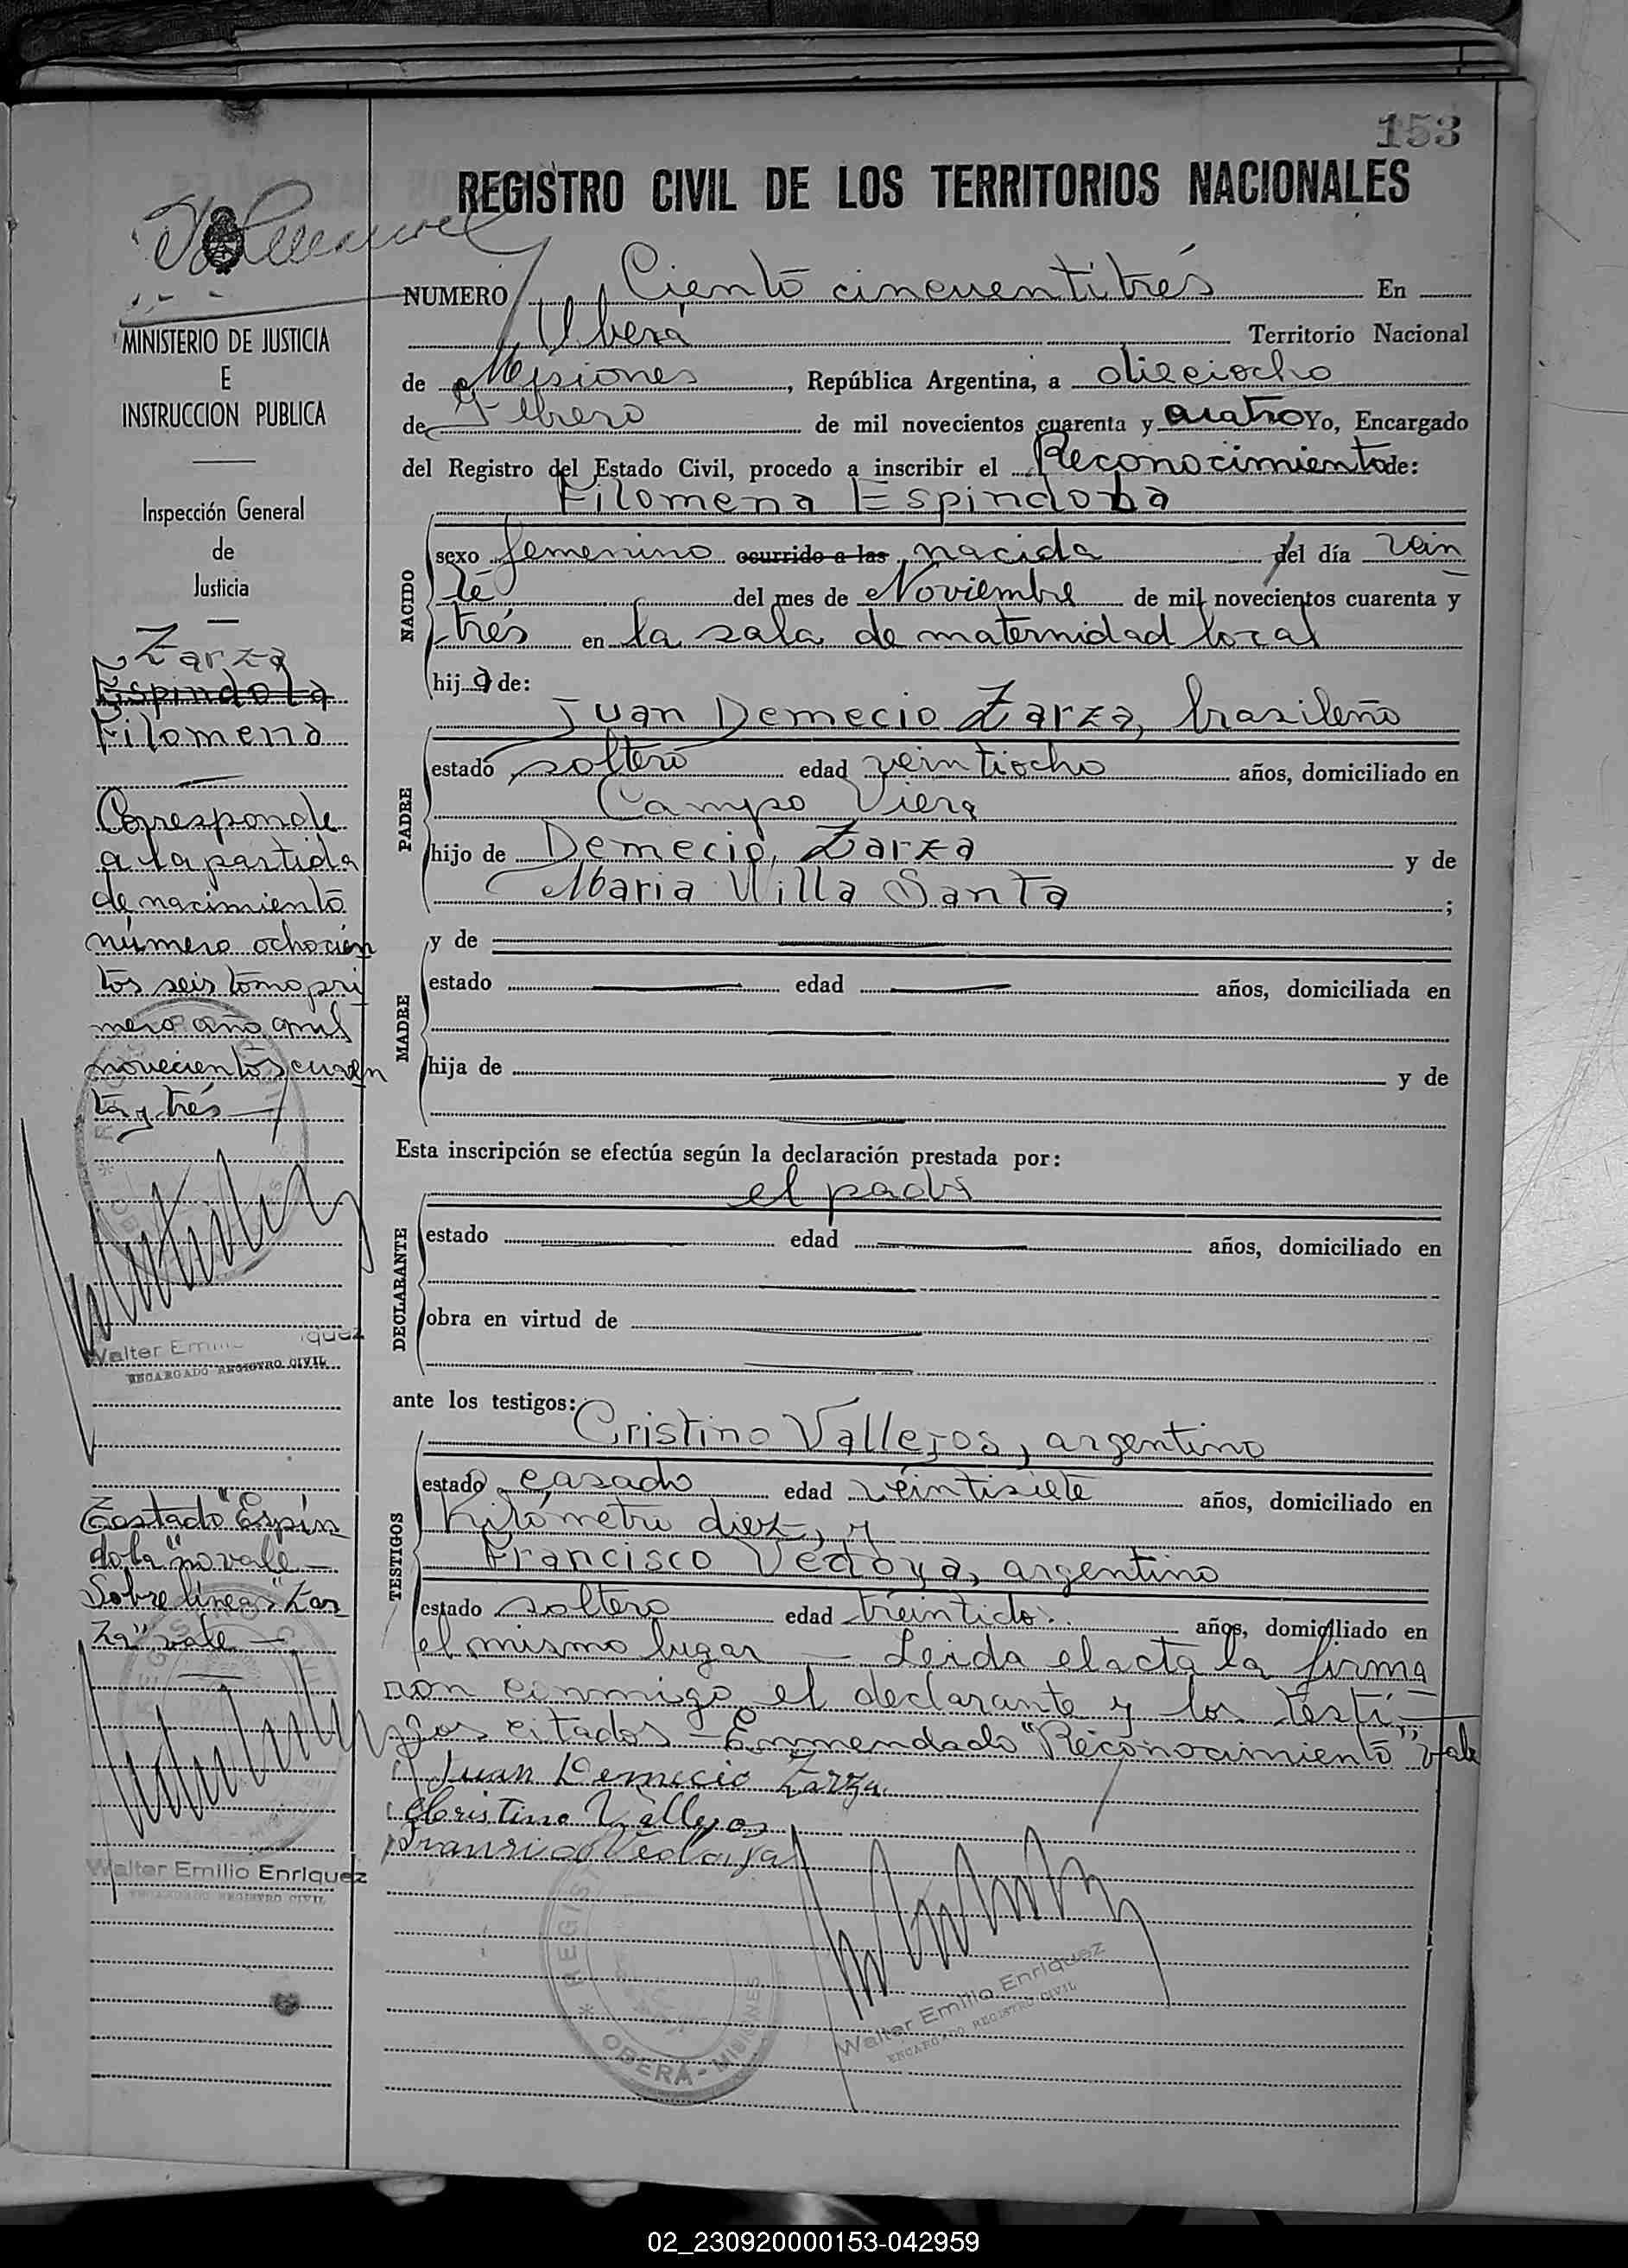 153
REGISTRO CIVIL DE LOS TERRITORIOS NACIONALES
NUMERO Ciento cincuentitrés En
Oberá Territorio Nacional
de Misiones, República Argentina, a dieciocho
de Febrero de mil novecientos cuarenta y cuatro Yo, Encargado
del Registro del Estado Civil, procedo a inscribir el Reconocimiento de:
MINISTERIO DE JUSTICIA
E
INSTRUCCION PUBLICA
Inspección General
de
Justicia
Zarza
Espindola
Filomena
Corresponde
a la partida
de nacimiento
número ochocien
tos seis tomo pri
mero año mil
novecientos cuaren
ta y trés
Walter Emilio Enriquez
ENCARGADO REGISTRO CIVIL
Testado "Espín
dola" no vale —
Sobre línea "Zar
za" vale —
Walter Emilio Enriquez
ENCARGADO REGISTRO CIVIL
NACIDO
Filomena Espindola
sexo femenino ocurrido a las nacida del día vein
te del mes de Noviembre de mil novecientos cuarenta y
trés en la sala de maternidad local
hij a de:
PADRE
Juan Demecio Zarza, brasileño
estado soltero edad veintiocho años, domiciliado en
Campo Viera
hijo de Demecio Zarza y de
Maria Villa Santa ;
MADRE
y de
estado edad años, domiciliada en
hija de y de
Esta inscripción se efectúa según la declaración prestada por:
DECLARANTE
el padre
estado edad años, domiciliado en
obra en virtud de
ante los testigos:
TESTIGOS
Cristino Vallejos, argentino
estado casado edad veintisiete años, domiciliado en
Kilómetro diez, y
Francisco Vedoya, argentino
estado soltero edad treintidos años, domiciliado en
el mismo lugar — Leida el acta la firma
ron conmigo el declarante y los testi-
gos citados — Enmendado "Reconocimiento" vale
Juan Demecio Zarza
Cristino Vallejos
Francisco Vedoya
REGIST
OBERÁ - MISIONES
Walter Emilio Enriquez
ENCARGADO REGISTRO CIVIL
02_230920000153-042959